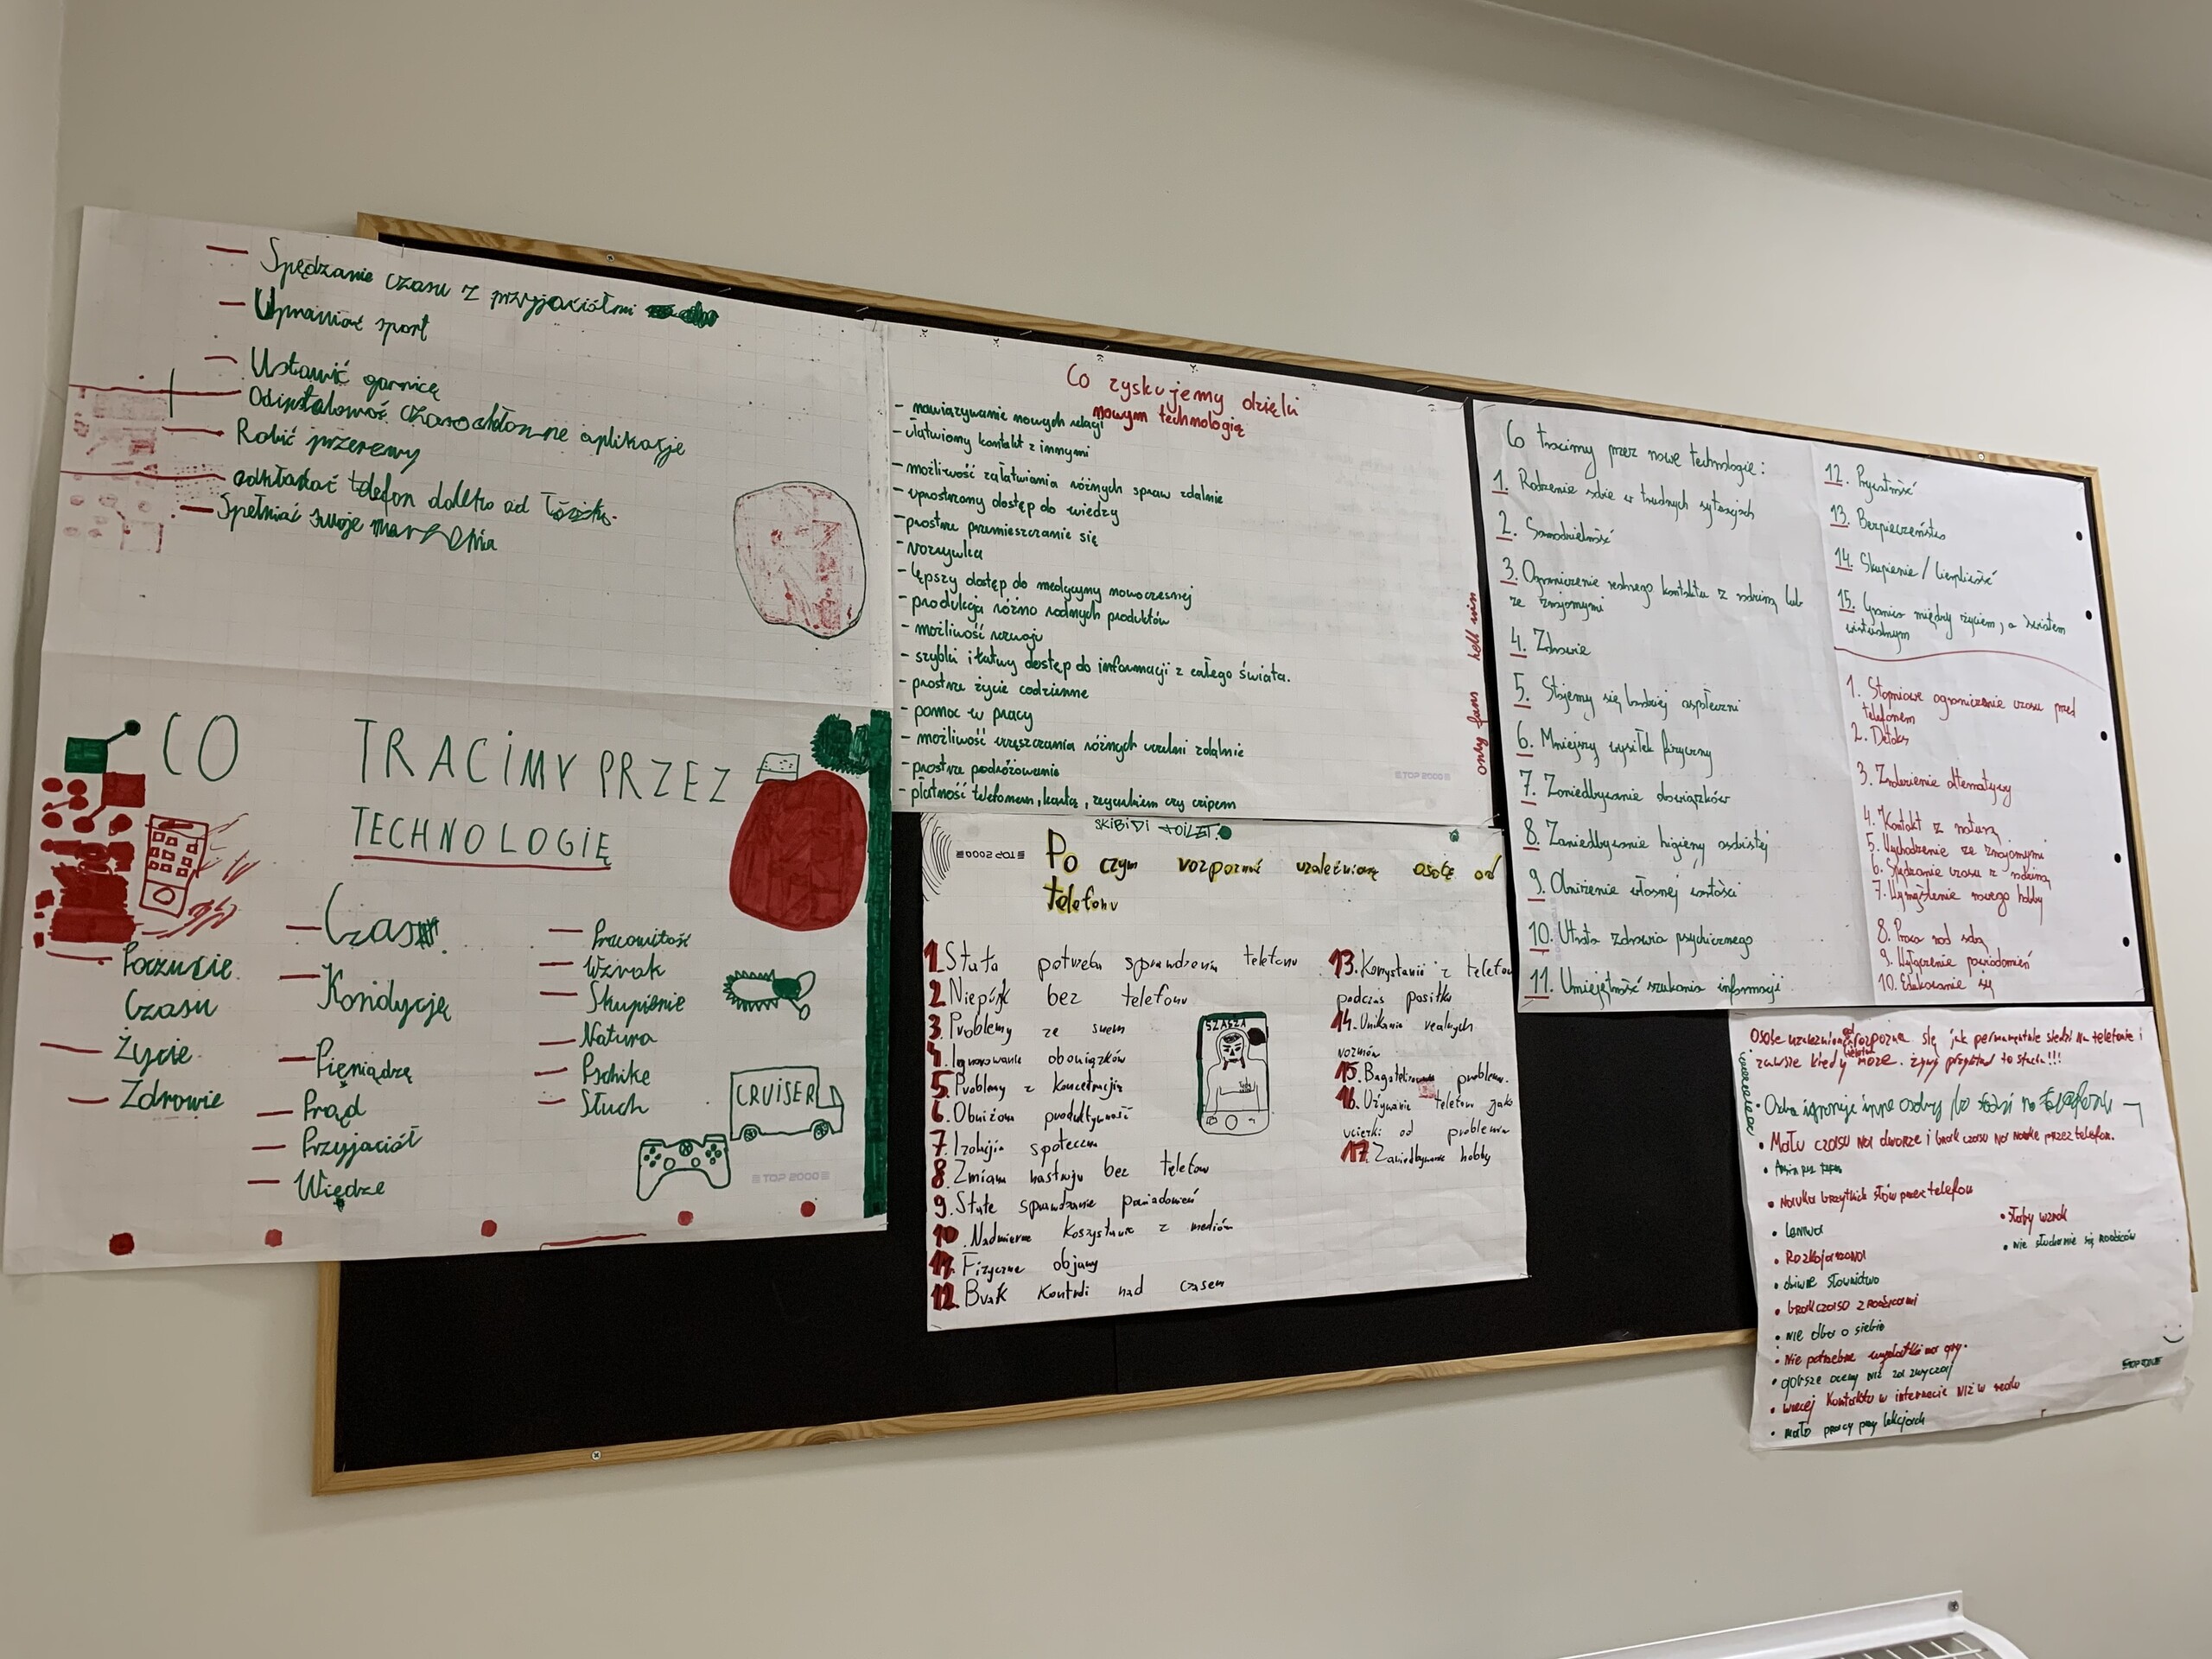 Spędzanie czasu z przyjaciółmi
Uprawiać sport
Ustawić garnicę
Odinstalować czasochłonne aplikacje
Robić przerwy
odkładać telefon daleko od łóżka.
Spełniać swoje marzenia
CO TRACIMY PRZEZ
TECHNOLOGIĘ
Poczucie
Czasu
Życie
Zdrowie
Czas
Kondycję
Pieniądze
Prąd
Przyjaciół
Wiedze
Pracowitość
Wzrok
Skupienie
Natura
Pschike
Słuch
CRUISER
TOP 2000
Co zyskujemy dzięki
nowym technologią
- nawiązywanie nowych relacji
- ułatwiony kontakt z innymi
- możliwość załatwiania różnych spraw zdalnie
- uprostrzony dostęp do wiedzy
- prostrze przemieszczanie się
- rozrywka
- lepszy dostęp do medycyny nowoczesnej
- produkcja różno rodnych produktów
- możliwość rozwoju
- szybki i łatwy dostęp do informacji z całego świata.
- prostrze życie codzienne
- pomoc w pracy
- możliwość uczęszczania różnych uczelni zdalnie
- prostrze podróżowanie
- płatność telefonem, kartą, zegarkiem czy czipem
TOP 2000
only fans hell win
SKIBIDI TOILET
TOP 2000
Po czym rozpoznać uzależnioną osobę od
telefonu
1. Stała potrzeba sprawdzania telefonu
2 Niepokój bez telefonu
3 Problemy ze snem
4. Ignorowanie obowiązków
5. Problemy z koncentracją
6. Obniżona produktywność
7. Izolacja społeczna
8 Zmiana nastroju bez telefonu
9. Stałe sprawdzanie powiadomień
10. Nadmierne koszystanie z mediów
11. Fizyczne objawy
12. Brak kontroli nad czasem
13. Korzystanie z telefonu
podczas posiłku
14. Unikanie realnych
rozmów
15. Bagatelizowanie problemu.
16. Używanie telefonu jako
ucieczki od problemów
17. Zaniedbywanie hobby
SZASZA
Co tracimy przez nowe technologie:
1. Radzenie sobie w trudnych sytuacjach
2. Samodzielność
3. Ograniczenie realnego kontaktu z rodziną lub
ze znajomymi
4. Zdrowie
5. Stajemy się bardziej aspołeczni
6. Mniejszy wysiłek fizyczny
7. Zaniedbywanie obowiązków
8. Zaniedbywanie higieny osobistej
9. Obniżenie własnej wartości
10. Utrata zdrowia psychicznego
11. Umiejętność szukania informacji
12. Prywatność
13. Bezpieczeństwo
14. Skupienie / Cierpliwość
15. Granica między życiem, a światem
wirtualnym
1. Stopniowe ograniczenie czasu przed
telefonem
2. Detoks
3. Znalezienie alternatywy
4. Kontakt z naturą
5. Wychodzenie ze znajomymi
6. Spędzanie czasu z rodziną
7. Wymyślenie nowego hobby
8. Praca nad sobą
9. Wyłączenie powiadomień
10. Edukowanie się
Osobe uzależnioną od telefonu rozpozna się jak permamentalie siedzi na telefonie i
zawsze kiedy może. żywy przykład to stasiu!!!
• Osoba ignoruje inne osoby bo siedzi na telefonie
• Mało czasu na dworze i brak czasu na nauke przez telefon.
• Nauka brzytkich słów przez telefon
• Leniwa
• Rozkojarzona
• dziwne słownictwo
• brak czasu z rodzicami
• nie dba o siebie
• Nie potrzebne wydatki na gry.
• gorsze oceny niż za zwyczaj
• więcej kontaktu w internecie niż w realu
• mało pracy przy lekcjach
• słaby wzrok
• nie słuchanie się rodziców